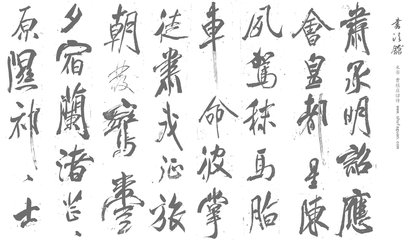 肅承明詔應
會皇都星陳
夙駕秣馬脂
車命彼掌
徒肅我征旅
朝發鸞臺
夕宿蘭渚芒々
原隰祁々士